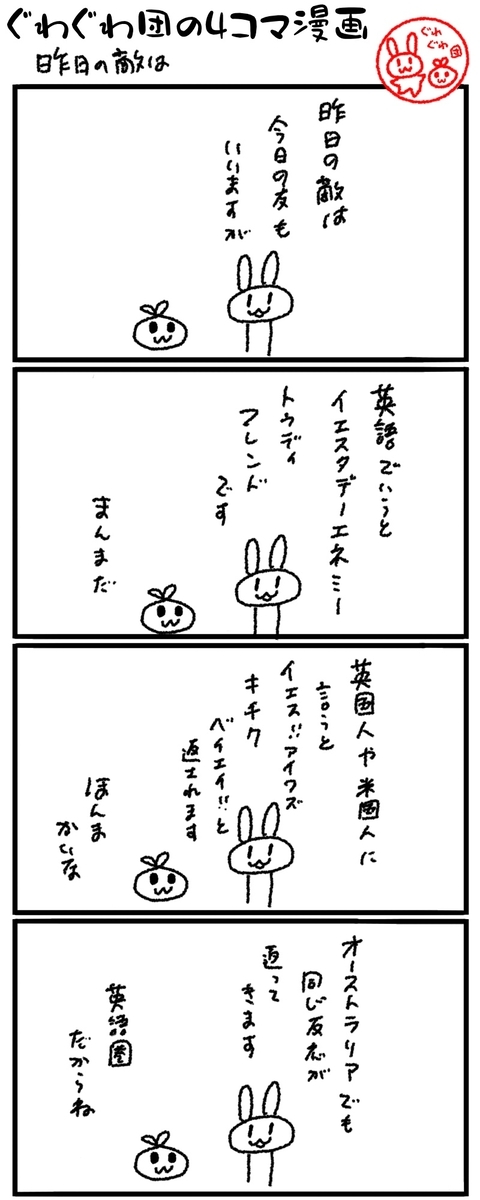 ぐわぐわ団の4コマ漫画
昨日の敵は
ぐわ
ぐわ
団
昨日の敵は
今日の友も
いいますが
英語でいうと
イエスタデーエネミー
トゥディ
フレンド
です
まんまだ
英国人や米国人に
言うと
イエス!!アイワズ
キチク
ベイエイ!!と
返されます
ほんま
かいな
オーストラリアでも
同じ反応が
返って
きます
英語圏
だからね